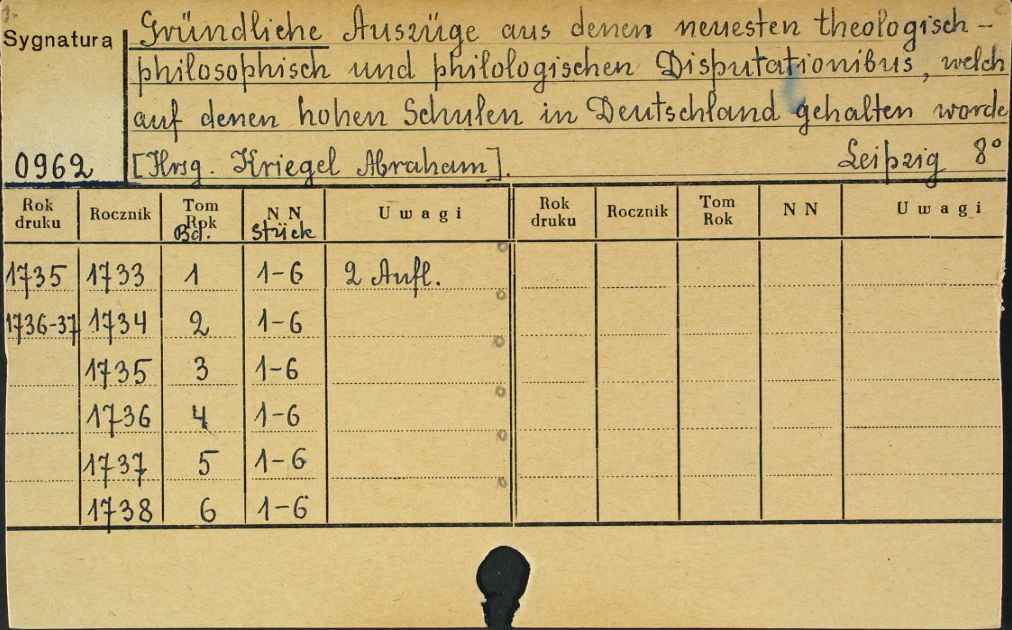 Sygnatura
Gründliche Auszüge aus denen neuesten theologisch-
philosophisch und philologischen Disputationibus, welch
auf denen hohen Schulen in Deutschland gehalten worde
0962 [Hrsg. Kriegel Abraham]. Leipzig 8°
Rok druku Rocznik Tom Rok Bd. N N Stück Uwagi Rok druku Rocznik Tom Rok N N Uwagi
1735 1733 1 1-6 2 Aufl.
1736-37 1734 2 1-6
1735 3 1-6
1736 4 1-6
1737 5 1-6
1738 6 1-6